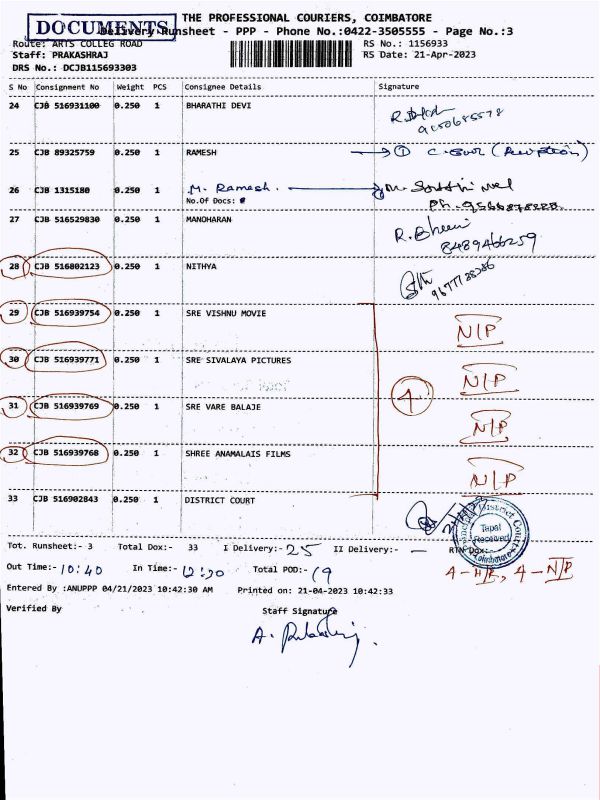 THE PROFESSIONAL COURIERS, COIMBATORE
DOCUMENTS
Delivery Runsheet - PPP - Phone No.:0422-3505555 - Page No.:3
Route: ARTS COLLEG ROAD RS No.: 1156933
Staff: PRAKASHRAJ RS Date: 21-Apr-2023
DRS No.: DCJB115693303
S No Consignment No Weight PCS Consignee Details Signature
24 CJB 516931100 0.250 1 BHARATHI DEVI
25 CJB 89325759 0.250 1 RAMESH
26 CJB 1315180 0.250 1 M. Ramesh.
No.Of Docs:
27 CJB 516529830 0.250 1 MANOHARAN
8489466259
28 CJB 516802123 0.250 1 NITHYA
29 CJB 516939754 0.250 1 SRE VISHNU MOVIE N/P
30 CJB 516939771 0.250 1 SRE SIVALAYA PICTURES N/P
4
31 CJB 516939769 0.250 1 SRE VARE BALAJE N/P
32 CJB 516939768 0.250 1 SHREE ANAMALAIS FILMS N/P
33 CJB 516902843 0.250 1 DISTRICT COURT
District Court
Tapal
Received
Coimbatore
Tot. Runsheet:- 3 Total Dox:- 33 I Delivery:- 25 II Delivery:- — RTN Dox:-
Out Time:- 10:40 In Time:- 12:30 Total POD:- 19 4-H/B, 4-N/P
Entered By :ANUPPP 04/21/2023 10:42:30 AM Printed on: 21-04-2023 10:42:33
Verified By Staff Signature